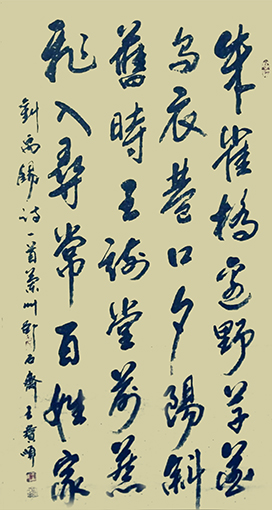 朱雀橋邊野草花
烏衣巷口夕陽斜
舊時王謝堂前燕
飛入尋常百姓家
劉禹錫詩一首蘭州石齋王